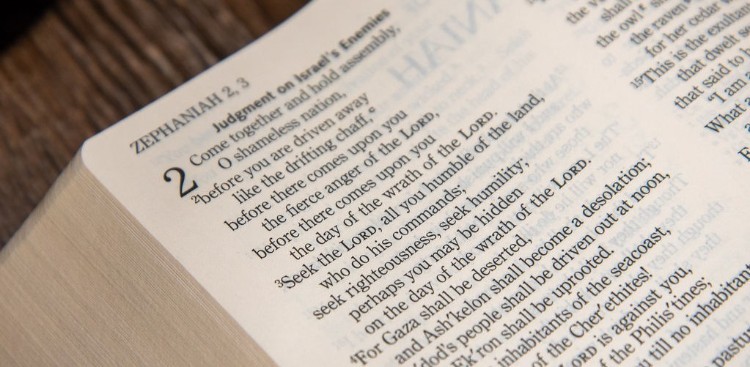 ZEPHANIAH 2, 3
Judgment on Israel's Enemies
2 Come together and hold assembly,
O shameless nation,
2before you are driven away
like the drifting chaff,e
before there comes upon you
the fierce anger of the LORD,
before there comes upon you
the day of the wrath of the LORD.
3Seek the LORD, all you humble of the land,
who do his commands;
seek righteousness, seek humility;
perhaps you may be hidden
on the day of the wrath of the LORD.
4For Gaza shall be deserted,
and Ash'kelon shall become a desolation;
dod's people shall be driven out at noon,
Ek'ron shall be uprooted.
inhabitants of the seacoast,
of the Cher'ethites!
LORD is against you,
of the Philis'tines;
you till no inhabitan
pastur
the v
the owl
the raven
for her cedar
15This is the exulta
that dwelt se
that said to
"I am
What a